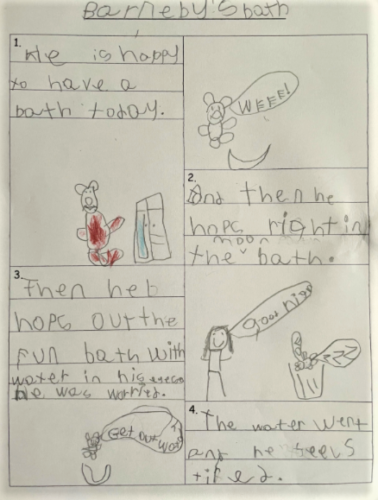 Barneby's bath
1.
He is happy
to have a
bath today.
WEEE!
2.
And then he
hops right in
moon
the bath.
3.
Then heb
hops out the
fun bath with
water in his
he was worried.
good nigo
ZZZ
Get out
4.
The water went
and he feels
tired.